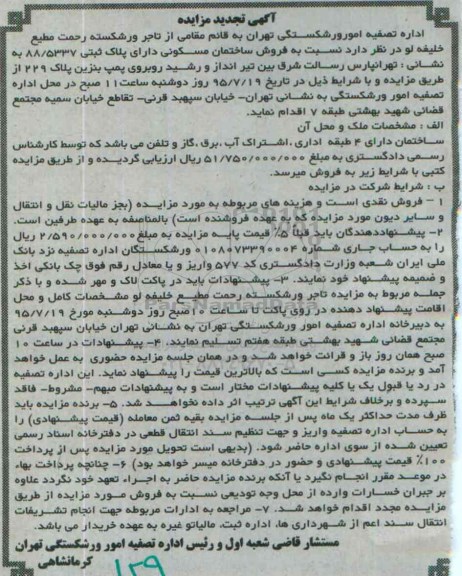 آگهی تجدید مزایده
اداره تصفیه امورورشکستگی تهران به قائم مقامی از تاجر ورشکسته رحمت مطیع
خلیفه لو در نظر دارد نسبت به فروش ساختمان مسکونی دارای پلاک ثبتی ۸۸/۵۳۳۷ به
نشانی : تهرانپارس رسالت شرق بین تیر انداز و رشید روبروی پمپ بنزین پلاک ۲۲۹ از
طریق مزایده و با شرایط ذیل در تاریخ ۹۵/۷/۱۹ روز دوشنبه ساعت۱۱ صبح در محل اداره
تصفیه امور ورشکستگی به نشانی تهران- خیابان سپهبد قرنی- تقاطع خیابان سمیه مجتمع
قضائی شهید بهشتی طبقه ۷ اقدام نماید.
الف : مشخصات ملک و محل آن
ساختمان دارای ۴ طبقه اداری ، اشتراک آب ،برق ،گاز و تلفن می باشد که توسط کارشناس
رسمی دادگستری به مبلغ ۵۱/۷۵۰/۰۰۰/۰۰۰ ریال ارزیابی گردیده و از طریق مزایده
کتبی با شرایط زیر به فروش میرسد.
ب : شرایط شرکت در مزایده
۱ – فروش نقدی است و هزینه های مربوطه به مورد مزایده (بجز مالیات نقل و انتقال
و سایر دیون مورد مزایده که به عهده فروشنده است) بالمناصفه به عهده طرفین است.
۲- پیشنهاددهندگان باید قبلاً ۵٪ قیمت پایه مزایده به مبلغ ۲/۵۹۰/۰۰۰/۰۰۰ ریال
را به حساب جاری شماره ۰۱۰۸۰۷۳۳۹۰۰۰۴ ورشکستگان اداره تصفیه نزد بانک
ملی ایران شعبه وزارت دادگستری کد ۵۷۷ واریز و یا معادل رقم فوق چک بانکی اخذ
و ضمیمه پیشنهاد خود نمایند. ۳- پیشنهادات باید در پاکت لاک و مهر شده و با ذکر
جمله مربوط به مزایده تاجر ورشکسته رحمت مطیع خلیفه لو مشخصات کامل و محل
اقامت پیشنهاد دهنده در روی پاکت تا ساعت ۱۰صبح روز دوشنبه مورخ ۹۵/۷/۱۹
به دبیرخانه اداره تصفیه امور ورشکستگی تهران به نشانی تهران خیابان سپهبد قرنی
مجتمع قضائی شهید بهشتی طبقه هفتم تسلیم نمایند. ۴- پیشنهادات در ساعت ۱۰
صبح همان روز باز و قرائت خواهد شد و در همان جلسه مزایده حضوری به عمل خواهد
آمد و برنده مزایده کسی است که بالاترین قیمت را پیشنهاد نماید. این اداره تصفیه
در رد یا قبول یک یا کلیه پیشنهادات مختار است و به پیشنهادات مبهم- مشروط- فاقد
سپرده و برخلاف شرایط این آگهی ترتیب اثر داده نخواهد شد. ۵- برنده مزایده باید
ظرف مدت حداکثر یک ماه پس از جلسه مزایده بقیه ثمن معامله (قیمت پیشنهادی) را
به حساب اداره تصفیه واریز و جهت تنظیم سند انتقال قطعی در دفترخانه اسناد رسمی
تعیین شده از سوی اداره حاضر شود. (بدیهی است تحویل مورد مزایده پس از پرداخت
۱۰۰٪ قیمت پیشنهادی و حضور در دفترخانه میسر خواهد بود) ۶- چنانچه پرداخت بهاء
در موعد مقرر انجام نگیرد یا آنکه برنده مزایده حاضر به اجراء تعهد خود نگردد علاوه
بر جبران خسارات وارده از محل وجه تودیعی نسبت به فروش مورد مزایده از طریق
مزایده مجدد اقدام خواهد شد. ۷- مراجعه به ادارات مربوطه جهت انجام تشریفات
انتقال سند اعم از شهرداری ها، اداره ثبت، مالیاتو غیره به عهده خریدار می باشد.
مستشار قاضی شعبه اول و رئیس اداره تصفیه امور ورشکستگی تهران
کرمانشاهی
۱۲۹